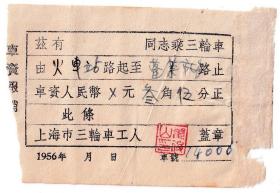 茲有 同志乘三輪車
由火車站路起至 路止
車資人民幣X元叁角伍分正
此條
上海市三輪車工人 蓋章
1956年 月 日 車號 14000
車資報銷